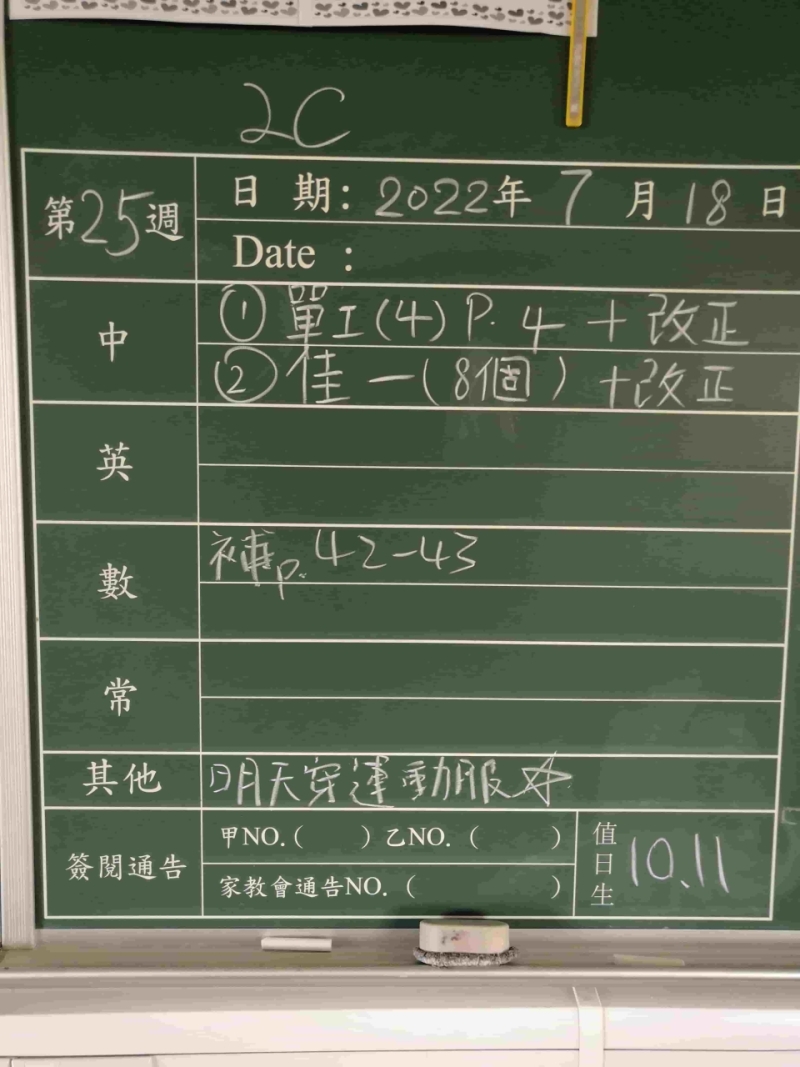 2C
第25週
日 期: 2022年 7 月 18 日
Date :
中
① 單工(4) P. 4 + 改正
② 佳一(8個) + 改正
英
數
補P. 42-43
常
其他
明天穿運動服☆
簽閱通告
甲NO.( ) 乙NO. ( )
家教會通告NO. ( )
值日生
10、11